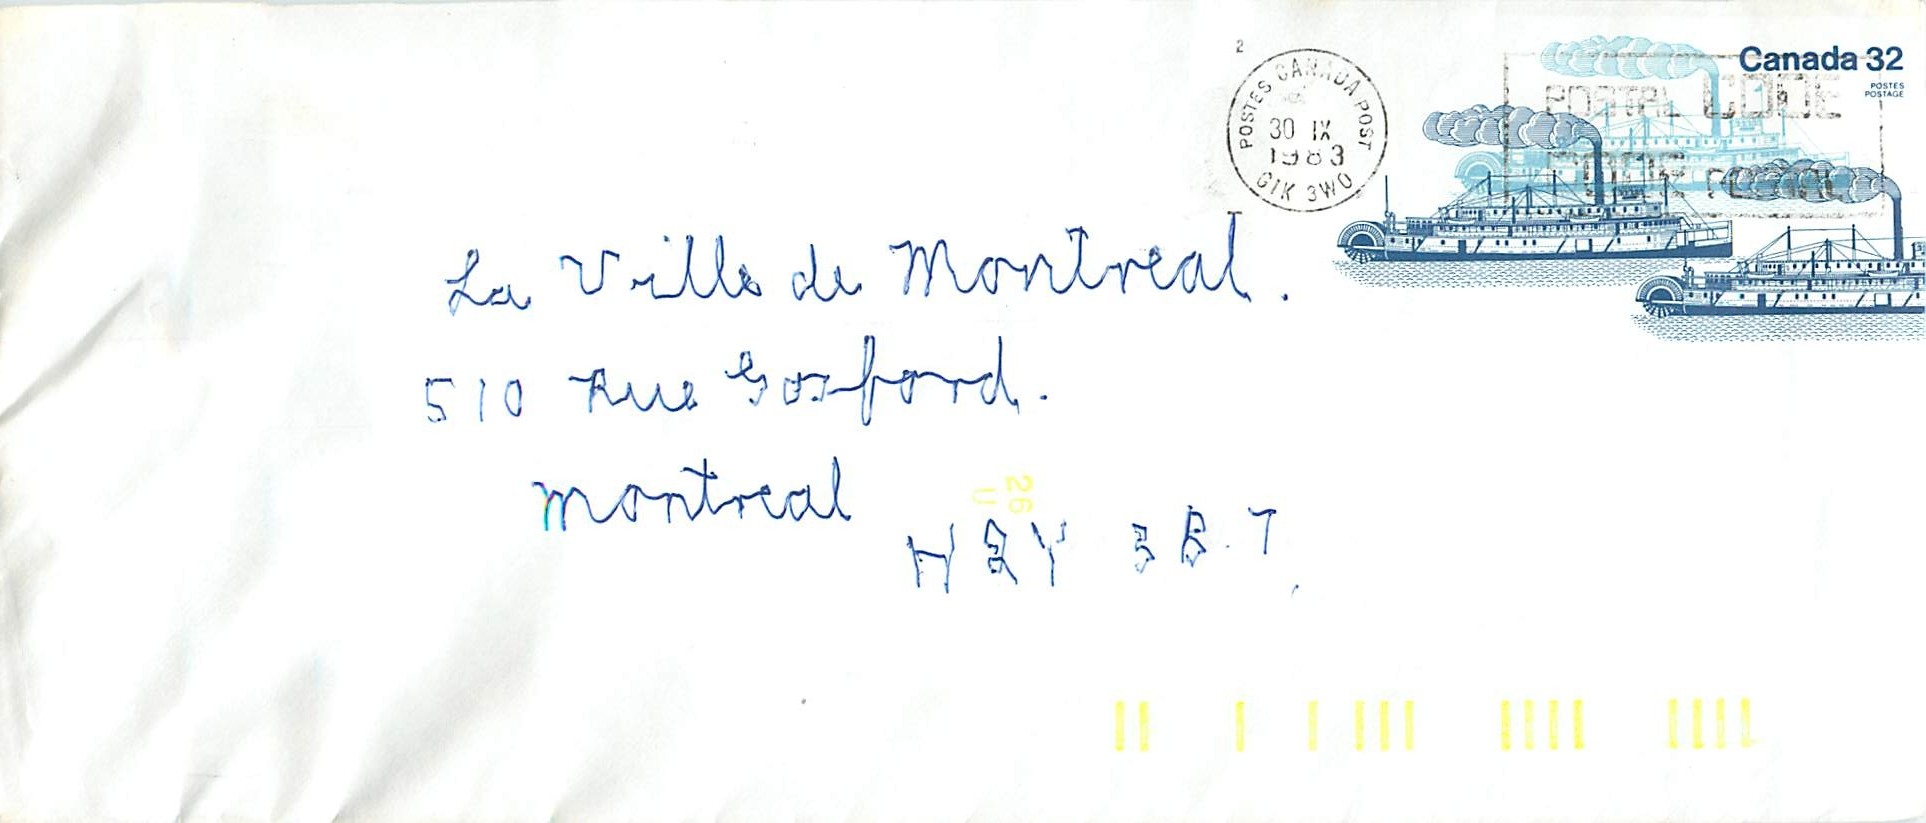 Canada 32
POSTES
POSTAGE
2
POSTES CANADA POST
30 IX
1983
G1K 3W0
POSTAL CODE
CODE POSTAL
La Ville de Montreal.
510 Rue Gosford.
Montreal
26
U
H2Y 3B.7